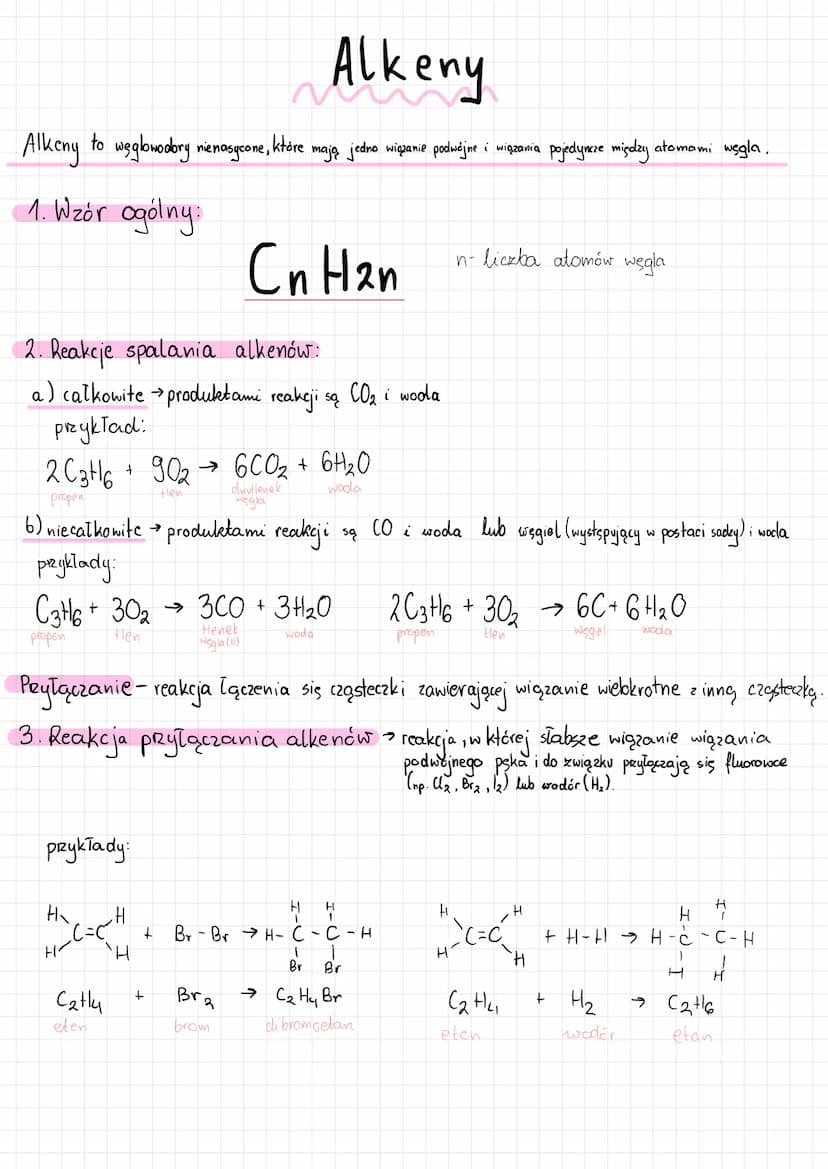 Alkeny
Alkeny to węglowodory nienasycone, które mają jedno wiązanie podwójne i wiązania pojedyncze między atomami węgla.
1. Wzór ogólny:
CnH2n
n- liczba atomów węgla
2. Reakcje spalania alkenów:
a) całkowite → produktami reakcji są CO2 i woda
przykład:
2C3H6 + 9O2 → 6CO2 + 6H2O
propen tlen dwutlenek węgla woda
b) niecałkowite → produktami reakcji są CO i woda lub węgiel (występujący w postaci sadzy) i woda
przykłady:
C3H6 + 3O2 → 3CO + 3H2O 2C3H6 + 3O2 → 6C + 6H2O
propen tlen tlenek węgla(II) woda propen tlen węgiel woda
Przyłączanie - reakcja łączenia się cząsteczki zawierającej wiązanie wielokrotne z inną cząsteczką.
3. Reakcja przyłączania alkenów → reakcja, w której słabsze wiązanie wiązania
podwójnego pęka i do związku przyłączają się fluorowce
(np. Cl2, Br2, I2) lub wodór (H2).
przykłady:
H H H H H H H H
C=C + Br - Br → H- C - C - H C=C + H-H → H - C - C - H
H H Br Br H H H H
C2H4 + Br2 → C2H4Br C2H4 + H2 → C2H6
eten brom dibromoetan eten wodór etan